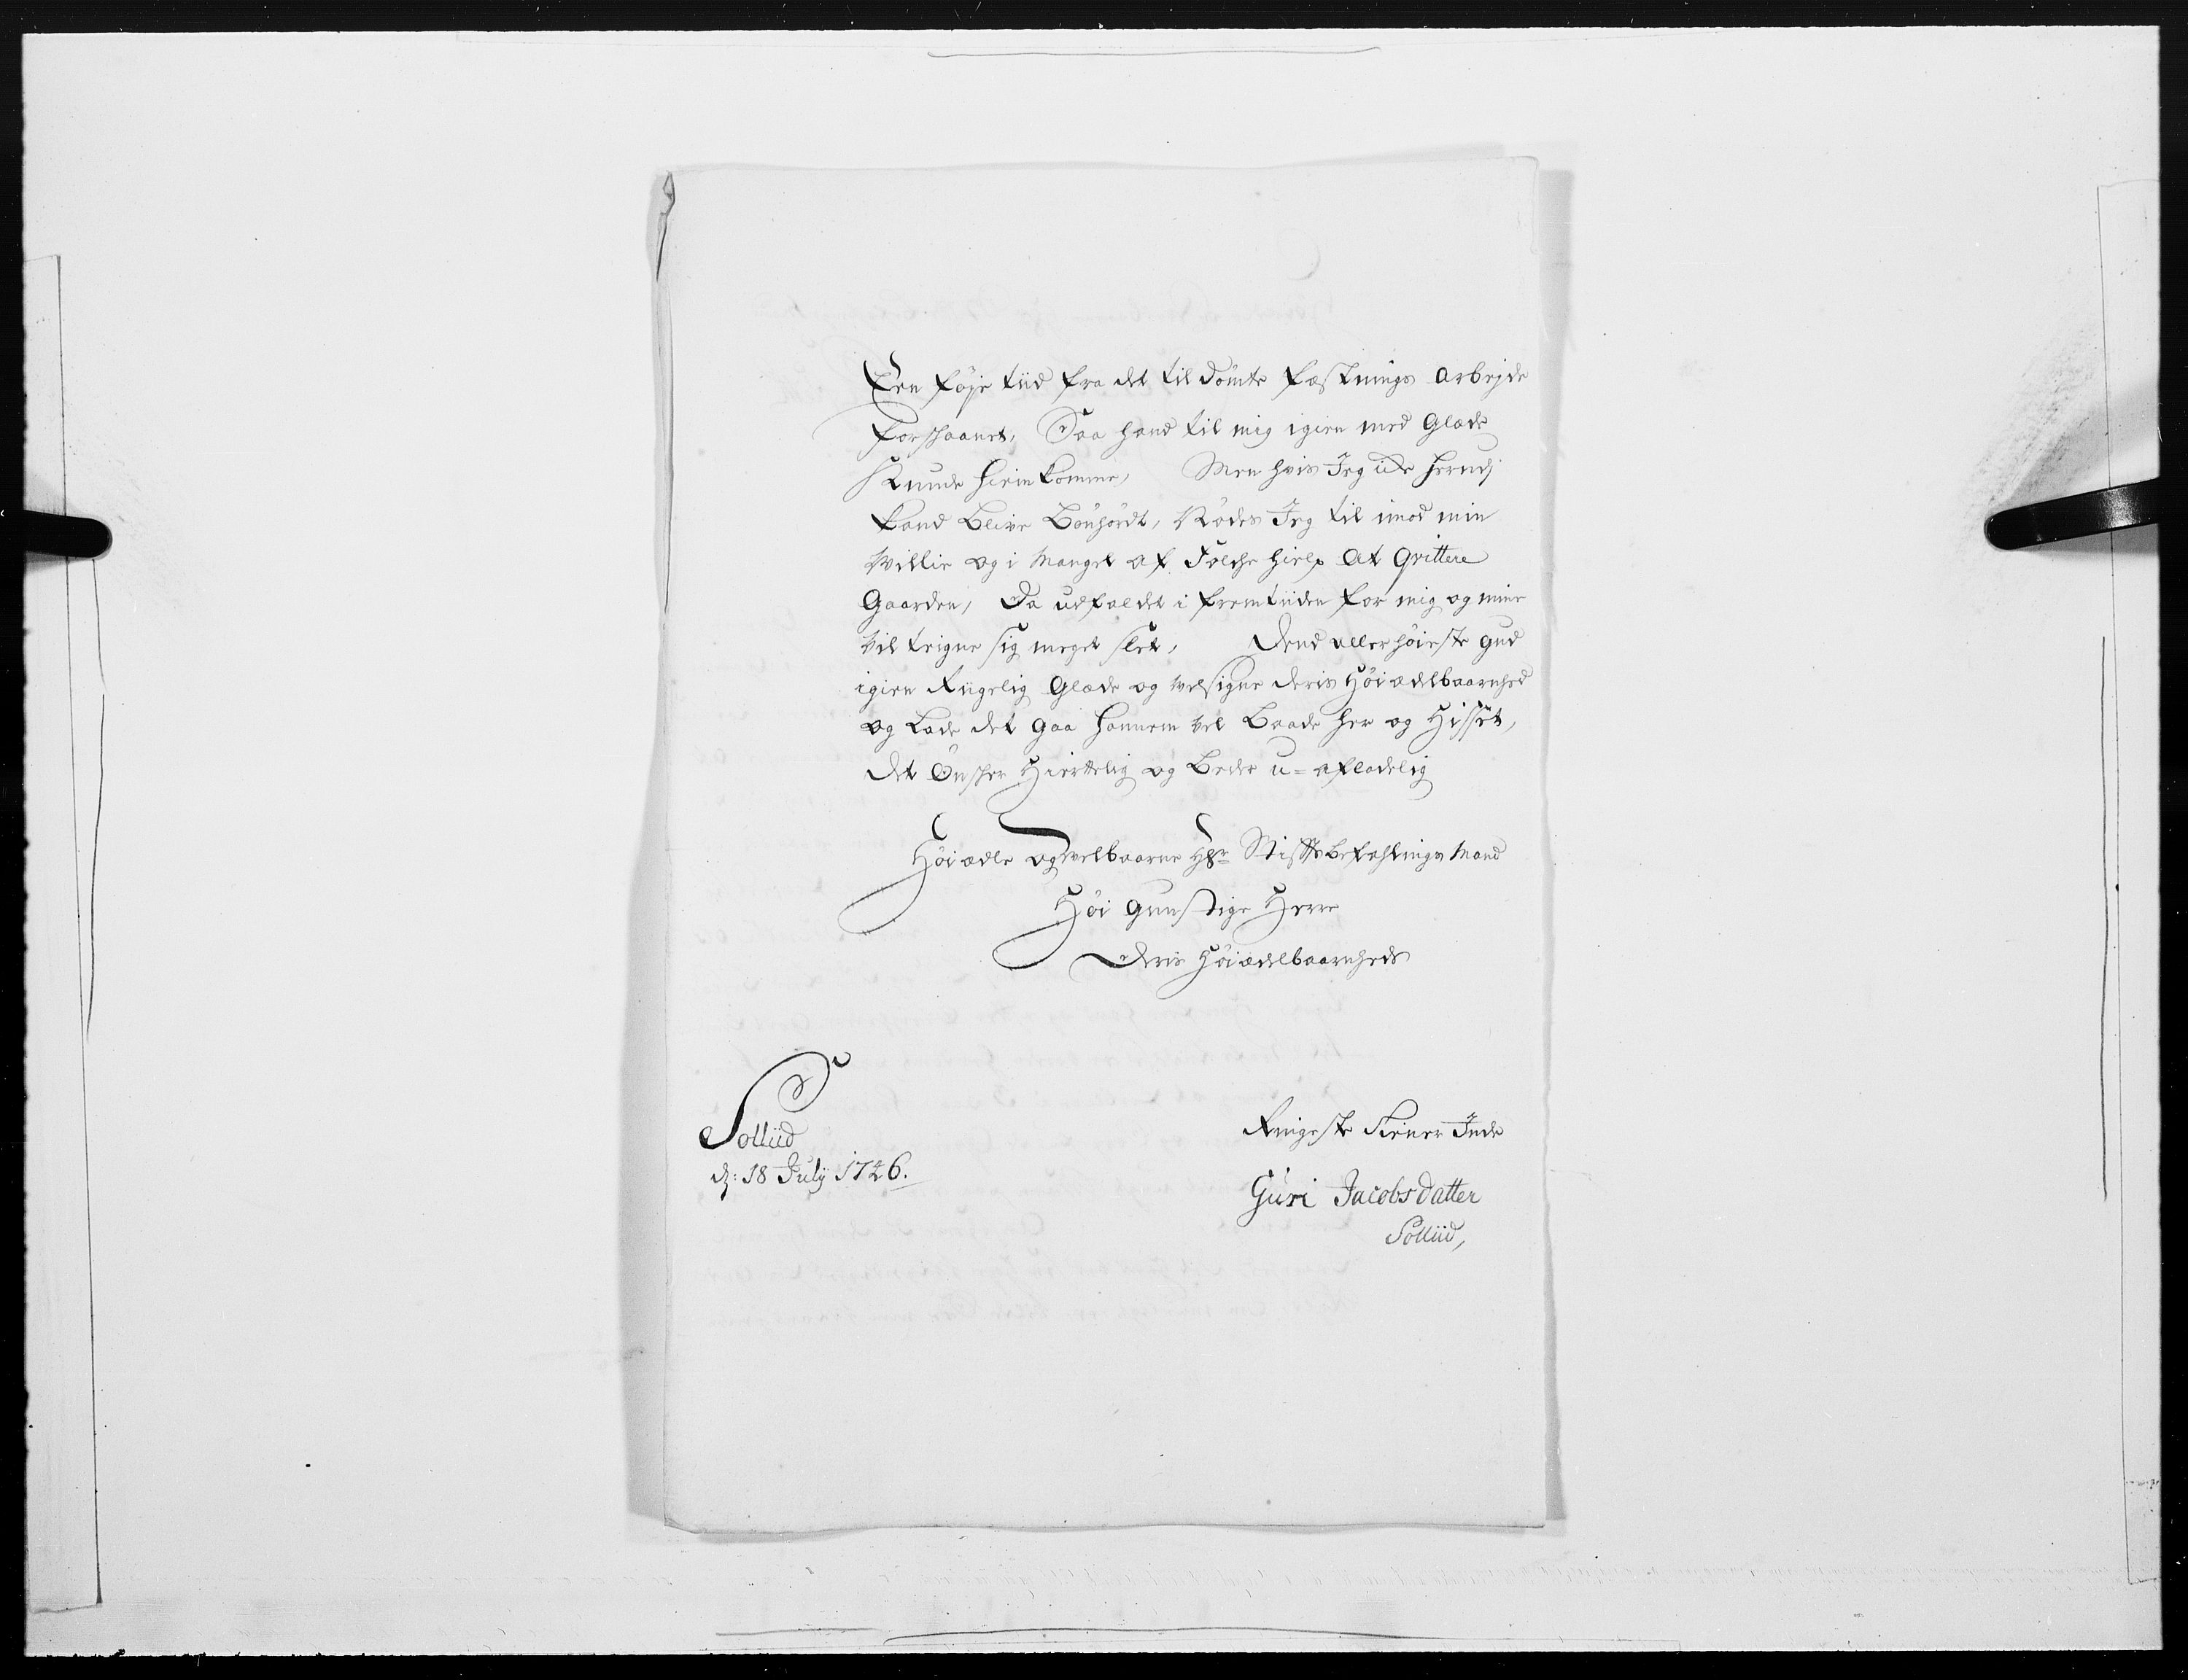 Een føje tiid fra det tildömte Fæstnings Arbejde
forskaanet, Saa hand til mig igien med Glæde
Kunde hiem komme, Men hvis Jeg icke herudj
kand Blive Bönhördt, Nödes Jeg til imod min
Villie og i Mangel af Folche hielp At Qvittere
Gaarden, Da udfaldet i fremtiiden for mig og mine
vil teigne sig meget slet, Dend allerhöieste Gud
igien Riigelig Glæde og velsigne deris Höiædelbaarnhed
og Lade det gaa hannem vel Baade her og Hisset,
det Önsker Hiertelig og Beder u=afladelig
Höiædle og Velbaarne Hr Stiftsbefahlings Mand
Höi Gunstige Herre
Deris Höiædelbaarnheds
Solliid
d: 18 July 1746.
Ringeste Tiener Inde
Guri Jacobsdatter
Solliid,